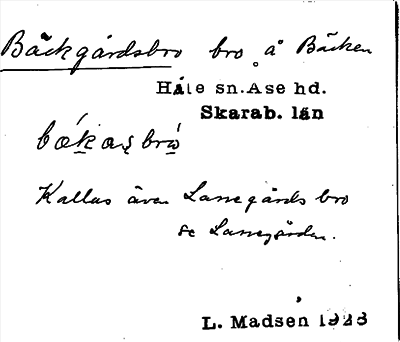 Bäckgårdsbro bro å Bäcken
Håle sn. Åse hd.
Skarab. län
Kallas även Lanegårds bro
se Lanegården.
L. Madsén 1928